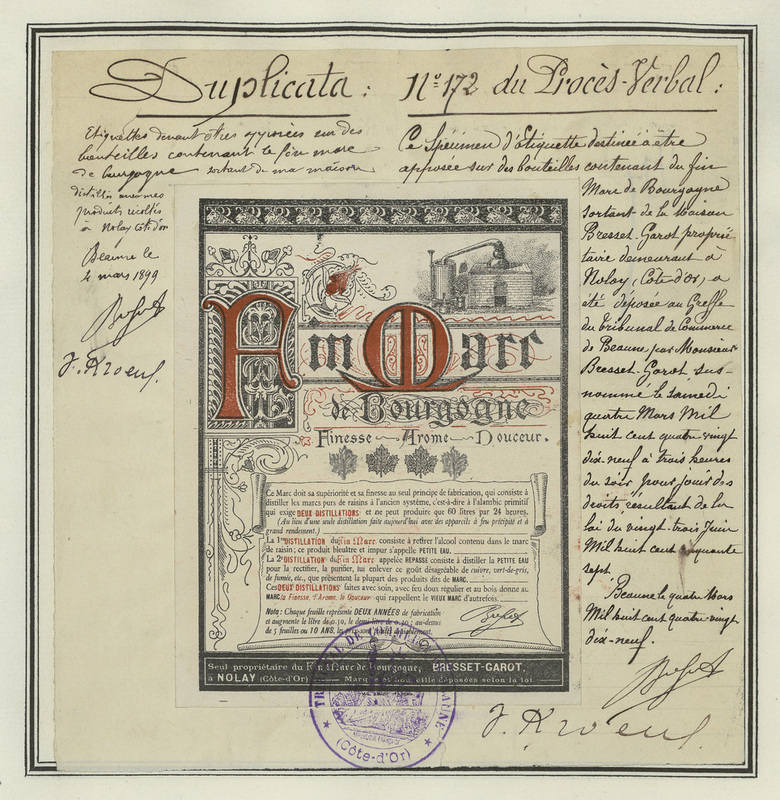 Duplicata : N° 172 du Procès-Verbal :
Etiquettes devant êtres apposées sur des
bouteilles contenant le fin marc
de bourgogne sortant de ma maison
distillés avec mes
produits récoltés
à Nolay Côte d'or
Beaune le
4 mars 1899
Ce Spécimen d'Etiquette destinée à être
apposée sur des bouteilles contenant du fin
Marc de Bourgogne
sortant de la Maison
Bresset-Garot proprié
taire demeurant à
Nolay, (Côte-d'or,) a
été déposée au Greffe
du Tribunal de Commerce
de Beaune par Monsieur
Bresset-Garot, sus-
nommé le samedi
quatre Mars Mil
huit cent quatre-vingt
dix-neuf à trois heures
du soir, pour jouir des
droits résultant de la
loi du vingt-trois Juin
Mil huit cent cinquante
sept.
Beaune le quatre Mars
Mil huit cent quatre-vingt
dix-neuf.
Fin Marc
de Bourgogne
Finesse - Arome - Douceur.
Ce Marc doit sa supériorité et sa finesse au seul principe de fabrication, qui consiste à
distiller les marcs purs de raisins à l'ancien système, c'est-à-dire à l'alambic primitif
qui exige DEUX DISTILLATIONS et ne peut produire que 60 litres par 24 heures.
(Au lieu d'une seule distillation faite aujourd'hui avec des appareils à feu précipité et à
grand rendement.)
La 1re DISTILLATION du Fin Marc consiste à retirer l'alcool contenu dans le marc
de raisin; ce produit bleuâtre et impur s'appelle PETITE EAU.
La 2e DISTILLATION du Fin Marc appelée REPASSE consiste à distiller la PETITE EAU
pour la rectifier, la purifier, lui enlever ce goût désagréable de cuivre, vert-de-gris,
de fumée, etc., que présentent la plupart des produits dits de MARC.
Ces DEUX DISTILLATIONS faites avec soin, avec feu doux régulier et au bois donne au
MARC la Finesse, l'Arome, la Douceur qui rappellent le VIEUX MARC d'autrefois.
Nota : Chaque feuille représente DEUX ANNÉES de fabrication
et augmente le litre de 0.50, le demi-litre de 0.30; au-dessus
de 5 feuilles ou 10 ANS, les prix
Seul propriétaire du Fin Marc de Bourgogne, BRESSET-GAROT,
à NOLAY (Côte-d'Or) — Marque et bouteille déposées selon la loi
(Côte-d'Or)